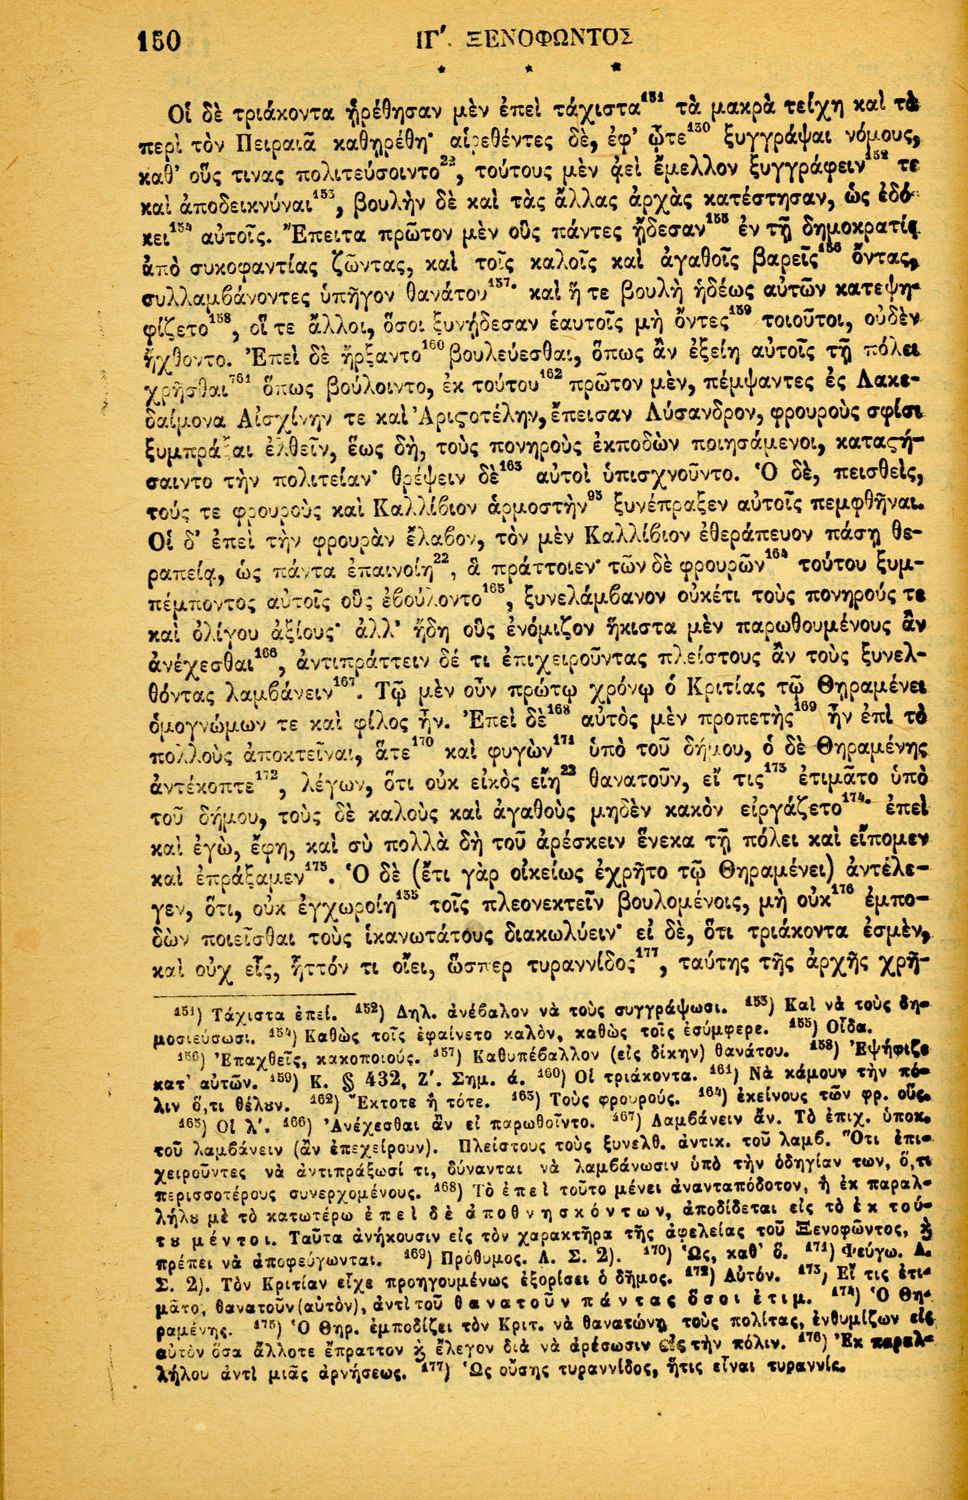 150 ΙΓʹ. ΞΕΝΟΦΩΝΤΟΣ
* * *
Οἱ δὲ τριάκοντα ᾑρέθησαν μὲν ἐπεὶ τάχιστα¹⁵¹ τὰ μακρὰ τείχη καὶ τὰ
περὶ τὸν Πειραιᾶ καθῃρέθη· αἱρεθέντες δὲ, ἐφ' ᾧτε¹³⁰ ξυγγράψαι νόμους,
καθ' οὕς τινας πολιτεύσοιντο²², τούτους μὲν ἀεὶ ἔμελλον ξυγγράφειν¹⁵² τε
καὶ ἀποδεικνύναι¹⁵³, βουλὴν δὲ καὶ τὰς ἄλλας ἀρχὰς κατέστησαν, ὡς ἐδό-
κει¹⁵⁴ αὐτοῖς. Ἔπειτα πρῶτον μὲν οὓς πάντες ᾔδεσαν¹⁵⁵ ἐν τῇ δημοκρατίᾳ
ἀπὸ συκοφαντίας ζῶντας, καὶ τοῖς καλοῖς καὶ ἀγαθοῖς βαρεῖς¹⁵⁶ ὄντας,
συλλαμβάνοντες ὑπῆγον θανάτου¹⁵⁷· καὶ ἥ τε βουλὴ ἡδέως αὐτῶν κατεψη-
φίζετο¹⁵⁸, οἵ τε ἄλλοι, ὅσοι ξυνῄδεσαν ἑαυτοῖς μὴ ὄντες¹⁵⁹ τοιοῦτοι, οὐδὲν
ἤχθοντο. Ἐπεὶ δὲ ἤρξαντο¹⁶⁰ βουλεύεσθαι, ὅπως ἂν ἐξείη αὐτοῖς τῇ πόλει
χρῆσθαι¹⁶¹ ὅπως βούλοιντο, ἐκ τούτου¹⁶² πρῶτον μὲν, πέμψαντες ἐς Λακε-
δαίμονα Αἰσχίνην τε καὶ Ἀριστοτέλην, ἔπεισαν Λύσανδρον, φρουροὺς σφίσι
ξυμπρᾶξαι ἐλθεῖν, ἕως δὴ, τοὺς πονηροὺς ἐκποδὼν ποιησάμενοι, καταστή-
σαιντο τὴν πολιτείαν· θρέψειν δὲ¹⁶³ αὐτοὶ ὑπισχνοῦντο. Ὁ δὲ, πεισθεὶς,
τούς τε φρουροὺς καὶ Καλλίβιον ἁρμοστὴν⁹³ ξυνέπραξεν αὐτοῖς πεμφθῆναι.
Οἱ δ' ἐπεὶ τὴν φρουρὰν ἔλαβον, τὸν μὲν Καλλίβιον ἐθεράπευον πάσῃ θε-
ραπείᾳ, ὡς πάντα ἐπαινοίη²², ἃ πράττοιεν· τῶν δὲ φρουρῶν¹⁶⁴ τούτου ξυμ-
πέμποντος αὐτοῖς οὓς ἐβούλοντο¹⁶⁵, ξυνελάμβανον οὐκέτι τοὺς πονηρούς τε
καὶ ὀλίγου ἀξίους· ἀλλ' ἤδη οὓς ἐνόμιζον ἥκιστα μὲν παρωθουμένους ἂν
ἀνέχεσθαι¹⁶⁶, ἀντιπράττειν δέ τι ἐπιχειροῦντας πλείστους ἂν τοὺς ξυνελ-
θόντας λαμβάνειν¹⁶⁷. Τῷ μὲν οὖν πρώτῳ χρόνῳ ὁ Κριτίας τῷ Θηραμένει
ὁμογνώμων τε καὶ φίλος ἦν. Ἐπεὶ δὲ¹⁶⁸ αὐτὸς μὲν προπετὴς¹⁶⁹ ἦν ἐπὶ τὸ
πολλοὺς ἀποκτεῖναι, ἅτε¹⁷⁰ καὶ φυγὼν¹⁷¹ ὑπὸ τοῦ δήμου, ὁ δὲ Θηραμένης
ἀντέκοπτε¹⁷², λέγων, ὅτι οὐκ εἰκὸς εἴη²² θανατοῦν, εἴ τις¹⁷³ ἐτιμᾶτο ὑπὸ
τοῦ δήμου, τοὺς δὲ καλοὺς καὶ ἀγαθοὺς μηδὲν κακὸν εἰργάζετο¹⁷⁴· ἐπεὶ
καὶ ἐγὼ, ἔφη, καὶ σὺ πολλὰ δὴ τοῦ ἀρέσκειν ἕνεκα τῇ πόλει καὶ εἴπομεν
καὶ ἐπράξαμεν¹⁷⁵. Ὁ δὲ (ἔτι γὰρ οἰκείως ἐχρῆτο τῷ Θηραμένει) ἀντέλε-
γεν, ὅτι, οὐκ ἐγχωροίη¹³⁵ τοῖς πλεονεκτεῖν βουλομένοις, μὴ οὐκ¹⁷⁶ ἐμπο-
δὼν ποιεῖσθαι τοὺς ἱκανωτάτους διακωλύειν· εἰ δὲ, ὅτι τριάκοντα ἐσμὲν,
καὶ οὐχ εἷς, ἧττόν τι οἴει, ὥσπερ τυραννίδος¹⁷⁷, ταύτης τῆς ἀρχῆς χρῆ-
¹⁵¹) Τάχιστα ἐπεί. ¹⁵²) Δηλ. ἀνέβαλον νὰ τοὺς συγγράψωσι. ¹⁵³) Καὶ νὰ τοὺς δη-
μοσιεύσωσι. ¹⁵⁴) Καθὼς τοῖς ἐφαίνετο καλὸν, καθὼς τοῖς ἐσύμφερε. ¹⁵⁵) Οἶδα.
¹⁵⁶) Ἐπαχθεῖς, κακοποιούς. ¹⁵⁷) Καθυπέβαλλον (εἰς δίκην) θανάτου. ¹⁵⁸) Ἐψήφιζε
κατ' αὐτῶν. ¹⁵⁹) Κ. § 432, Ζʹ. Σημ. ά. ¹⁶⁰) Οἱ τριάκοντα. ¹⁶¹) Νὰ κάμουν τὴν πό-
λιν ὅ,τι θέλουν. ¹⁶²) Ἔκτοτε ἢ τότε. ¹⁶³) Τοὺς φρουρούς. ¹⁶⁴) ἐκείνους τῶν φρ. οὕς.
¹⁶⁵) Οἱ λʹ. ¹⁶⁶) Ἀνέχεσθαι ἂν εἰ παρωθοῖντο. ¹⁶⁷) Λαμβάνειν ἄν. Τὸ ἐπιχ. ὑποκ.
τοῦ λαμβάνειν (ἂν ἐπεχείρουν). Πλείστους τοὺς ξυνελθ. ἀντικ. τοῦ λαμβ. Ὅτι ἐπι-
χειροῦντες νὰ ἀντιπράξωσί τι, δύνανται νὰ λαμβάνωσιν ὑπὸ τὴν ὁδηγίαν των, ὅ,τι
περισσοτέρους συνερχομένους. ¹⁶⁸) Τὸ ἐπεὶ τοῦτο μένει ἀνανταπόδοτον, ἢ ἐκ παραλ-
λήλου μὲ τὸ κατωτέρω ἐπεὶ δὲ ἀποθνησκόντων, ἀποδίδεται εἰς τὸ ἐκ τού-
του μέντοι. Ταῦτα ἀνήκουσιν εἰς τὸν χαρακτῆρα τῆς ἀφελείας τοῦ Ξενοφῶντος, ἃ
πρέπει νὰ ἀποφεύγωνται. ¹⁶⁹) Πρόθυμος. Λ. Σ. 2). ¹⁷⁰) Ὡς, καθ' ὅ. ¹⁷¹) Φεύγω. Λ.
Σ. 2). Τὸν Κριτίαν εἶχε προηγουμένως ἐξορίσει ὁ δῆμος. ¹⁷²) Αὐτόν. ¹⁷³) Εἴ τις ἐτι-
μᾶτο, θανατοῦν (αὐτὸν), ἀντὶ τοῦ θανατοῦν πάντας ὅσοι ἐτιμ. ¹⁷⁴) Ὁ Θη-
ραμένης. ¹⁷⁵) Ὁ Θηρ. ἐμποδίζει τὸν Κριτ. νὰ θανατώνῃ τοὺς πολίτας, ἐνθυμίζων εἰς
αὐτὸν ὅσα ἄλλοτε ἔπραττον ϗ ἔλεγον διὰ νὰ ἀρέσωσιν εἰς τὴν πόλιν. ¹⁷⁶) Ἐκ παραλ-
λήλου ἀντὶ μιᾶς ἀρνήσεως. ¹⁷⁷) Ὡς οὔσης τυραννίδος, ἥτις εἶναι τυραννίς.